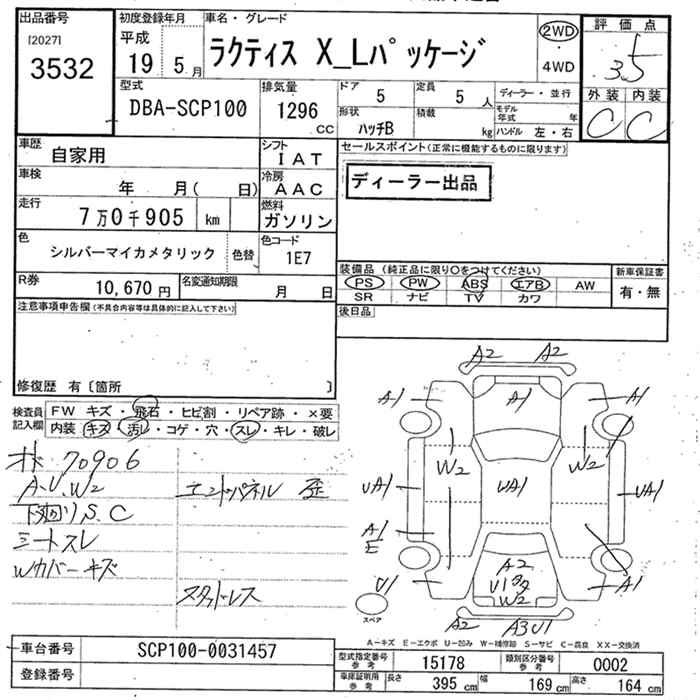 出品番号
[2027]
3532
初度登録年月
平成
19 5月
車名・グレード
ラクティス X_Lパッケージ
2WD
4WD
評価点
3.5
外装 内装
C C
型式
DBA-SCP100
排気量
1296
CC
ドア
5
定員
5 人
ディーラー・並行
形状
ハッチB
積載
kg
モデル年式
年
ハンドル 左・右
車歴
自家用
シフト
IAT
車検
年 月( 日)
冷房
AAC
走行
7万0千905 km
燃料
ガソリン
色
シルバーマイカメタリック
色替
色コード
1E7
R券
10,670円
名変通知期限
月 日
セールスポイント(正常に機能するものに限ります)
ディーラー出品
装備品(純正品に限り○をつけてください)
PS PW ABS エアB AW
SR ナビ TV カワ
新車保証書
有・無
後日品
注意事項申告欄(不具合内容等は具体的に記入して下さい)
修復歴 有〔箇所 〕
検査員記入欄
FW キズ・飛石・ヒビ割・リペア跡・×要
内装 キズ・汚レ・コゲ・穴・スレ・キレ・破レ
70906
A.U.W2
下廻りS.C
シートスレ
Wカバーキズ
エンドパネル 歪
スタッドレス
A2 A2
A1 A1 A1
W2 W2
UA1 UA1 UA1
A1
E
U1
A2
W2
A1
A2 A3U1
スペア
A-キズ E-エクボ U-凹み W-補修跡 S-サビ C-腐食 XX-交換済
車台番号
SCP100-0031457
登録番号
型式指定番号
参考
15178
類別区分番号
参考
0002
車庫証明用
参考
長さ 395 cm
幅 169 cm
高さ 164 cm